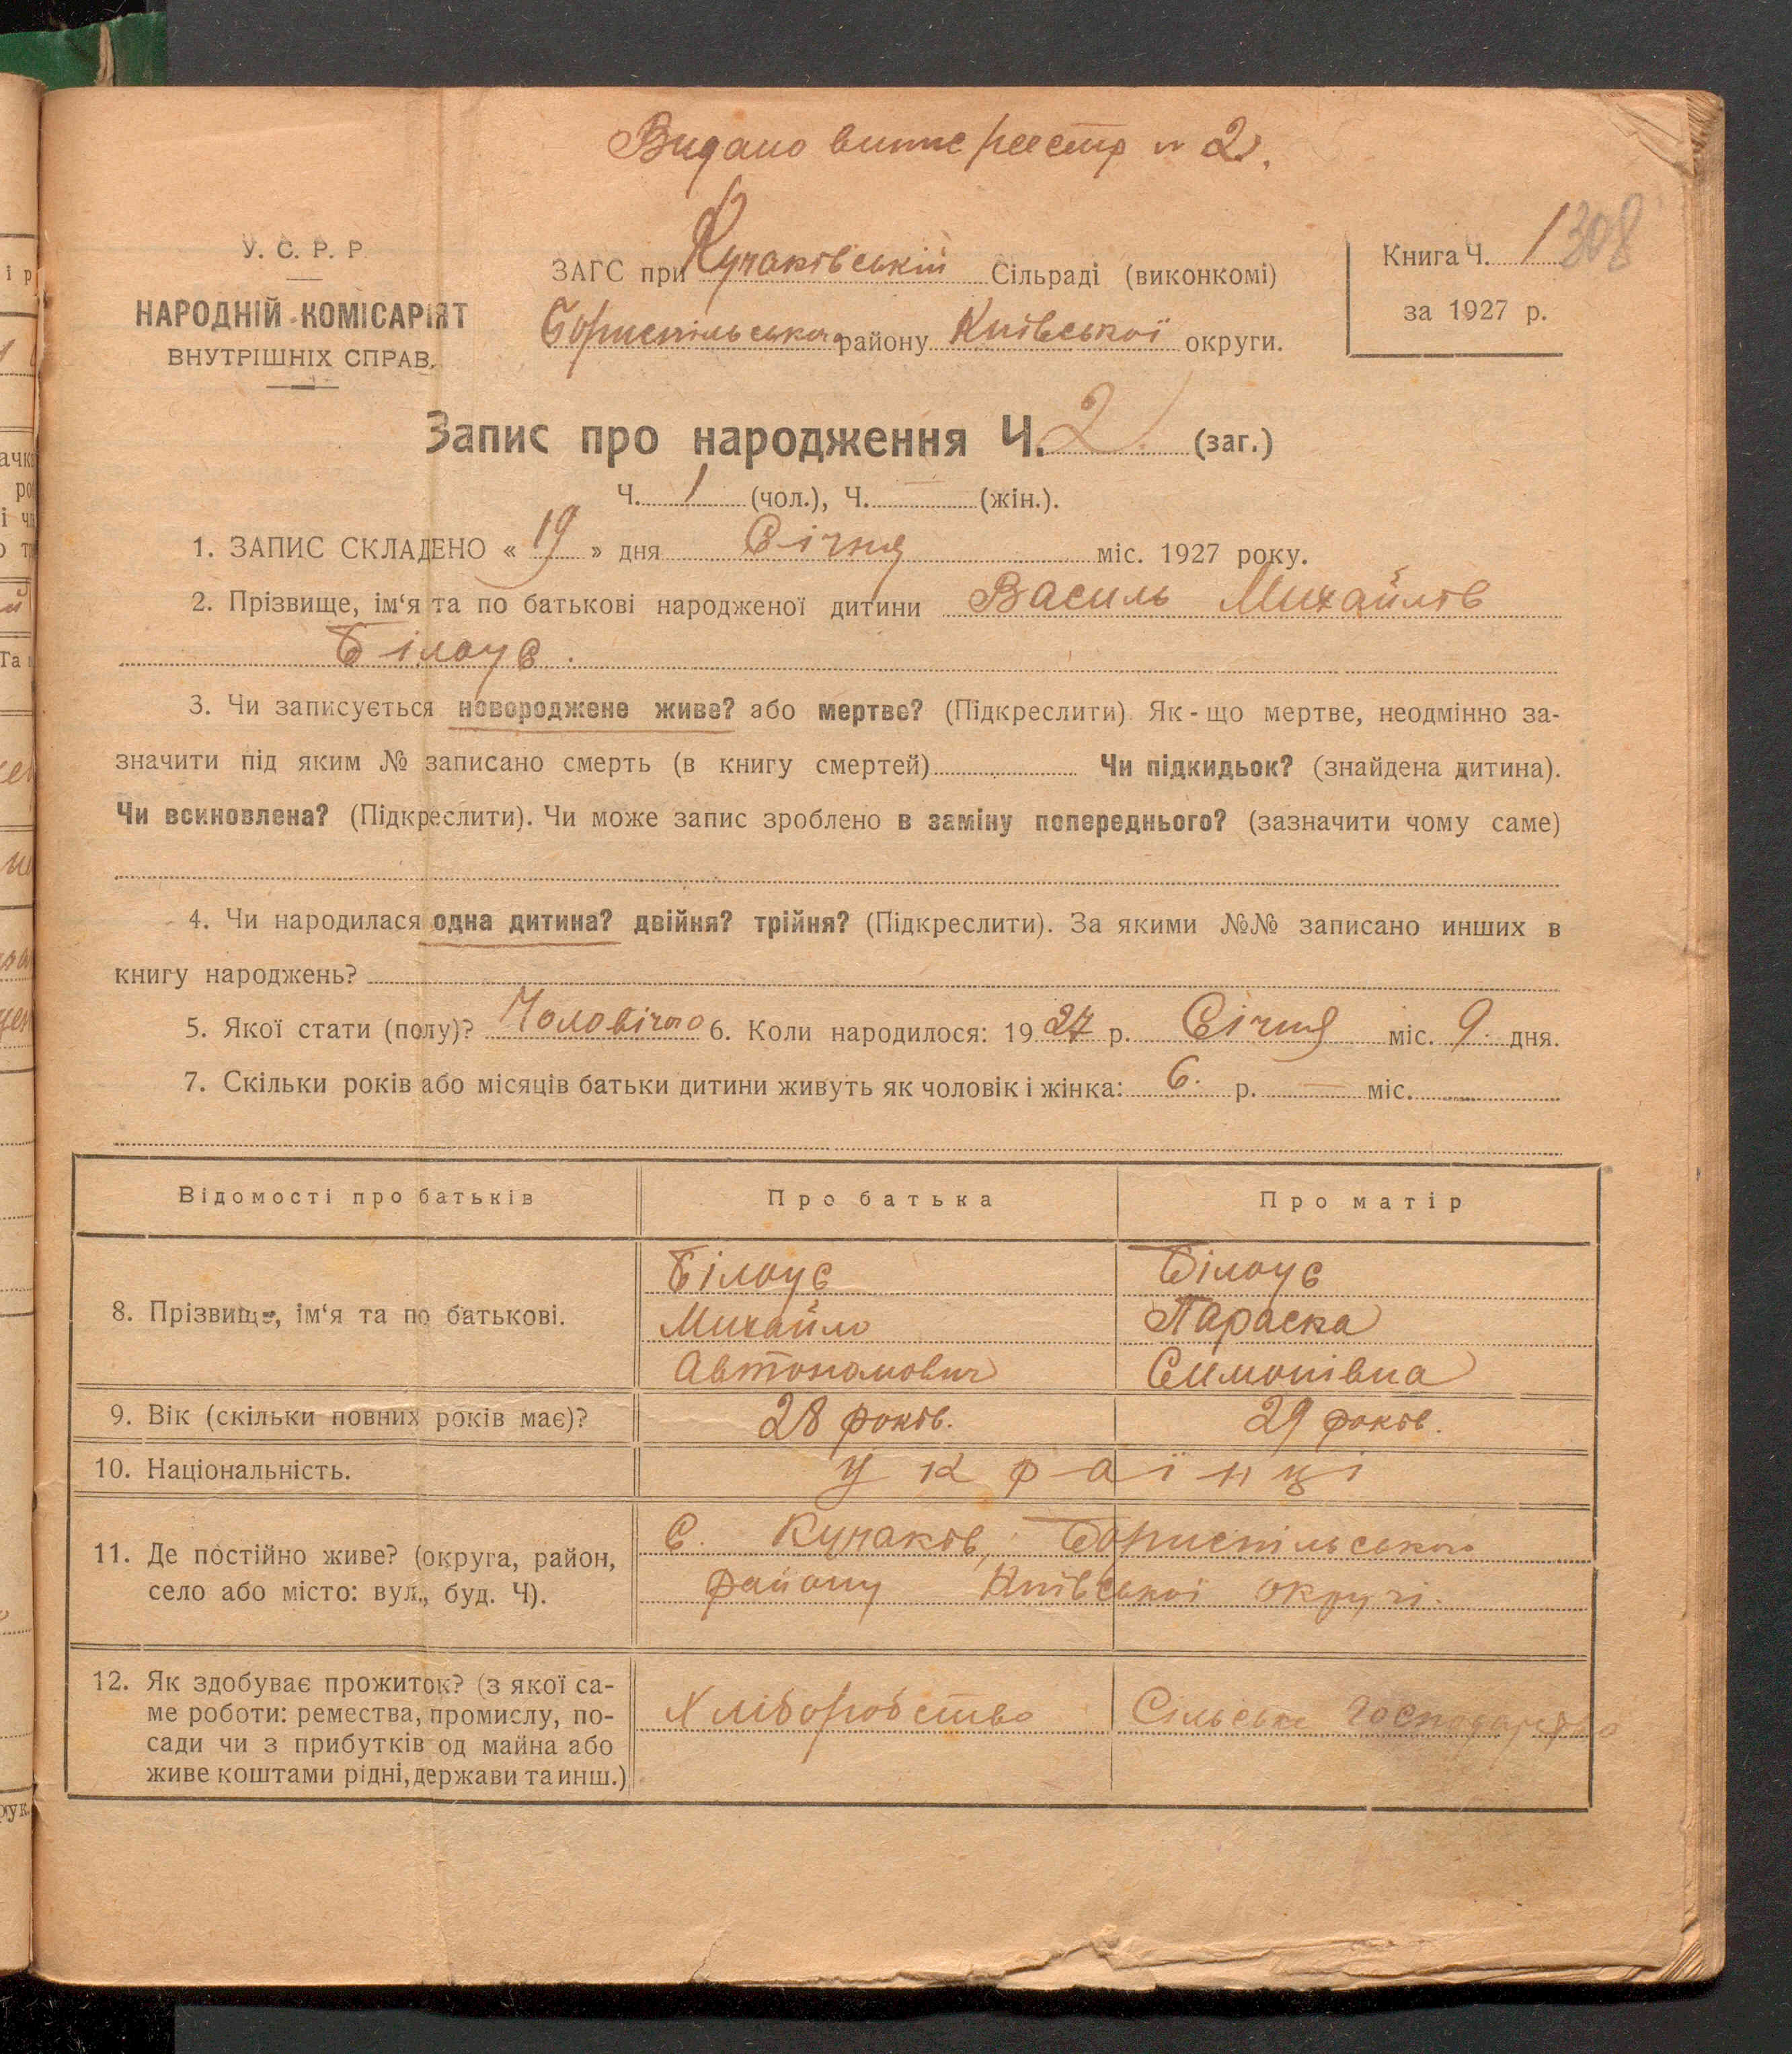 Видано випис реєстр № 2.
У. С. Р. Р.
НАРОДНІЙ КОМІСАРІЯТ
ВНУТРІШНІХ СПРАВ.
ЗАГС при Кучаківській Сільраді (виконкомі)
Бориспільського району Київської округи.
Книга Ч. 1 308
за 1927 р.
Запис про народження Ч. 2 (заг.)
Ч. 1 (чол.), Ч. — (жін.).
1. ЗАПИС СКЛАДЕНО « 19 » дня Січня міс. 1927 року.
2. Прізвище, ім‘я та по батькові народженої дитини Василь Михайлів
Білоус.
3. Чи записується новороджене живе? або мертве? (Підкреслити). Як-що мертве, неодмінно за-
значити під яким № записано смерть (в книгу смертей) Чи підкидьок? (знайдена дитина).
Чи всиновлена? (Підкреслити). Чи може запис зроблено в заміну попереднього? (зазначити чому саме)
4. Чи народилася одна дитина? двійня? трійня? (Підкреслити). За якими №№ записано инших в
книгу народжень?
5. Якої стати (полу)? Чоловічого 6. Коли народилося: 1927 р. Січня міс. 9. дня.
7. Скільки років або місяців батьки дитини живуть як чоловік і жінка: 6. р. — міс.
Відомості про батьків Про батька Про матір
8. Прізвище, ім‘я та по батькові.
Білоус Білоус
Михайло Параска
Автономович Симонівна
9. Вік (скільки повних років має)? 28 років. 29 років.
10. Національність. Українці
11. Де постійно живе? (округа, район,
село або місто: вул., буд. Ч).
С. Кучаків, Бориспільського
району Київської округі.
12. Як здобуває прожиток? (з якої са-
ме роботи: ремества, промислу, по-
сади чи з прибутків од майна або
живе коштами рідні, держави та инш.)
Хліборобство Сільське господарство